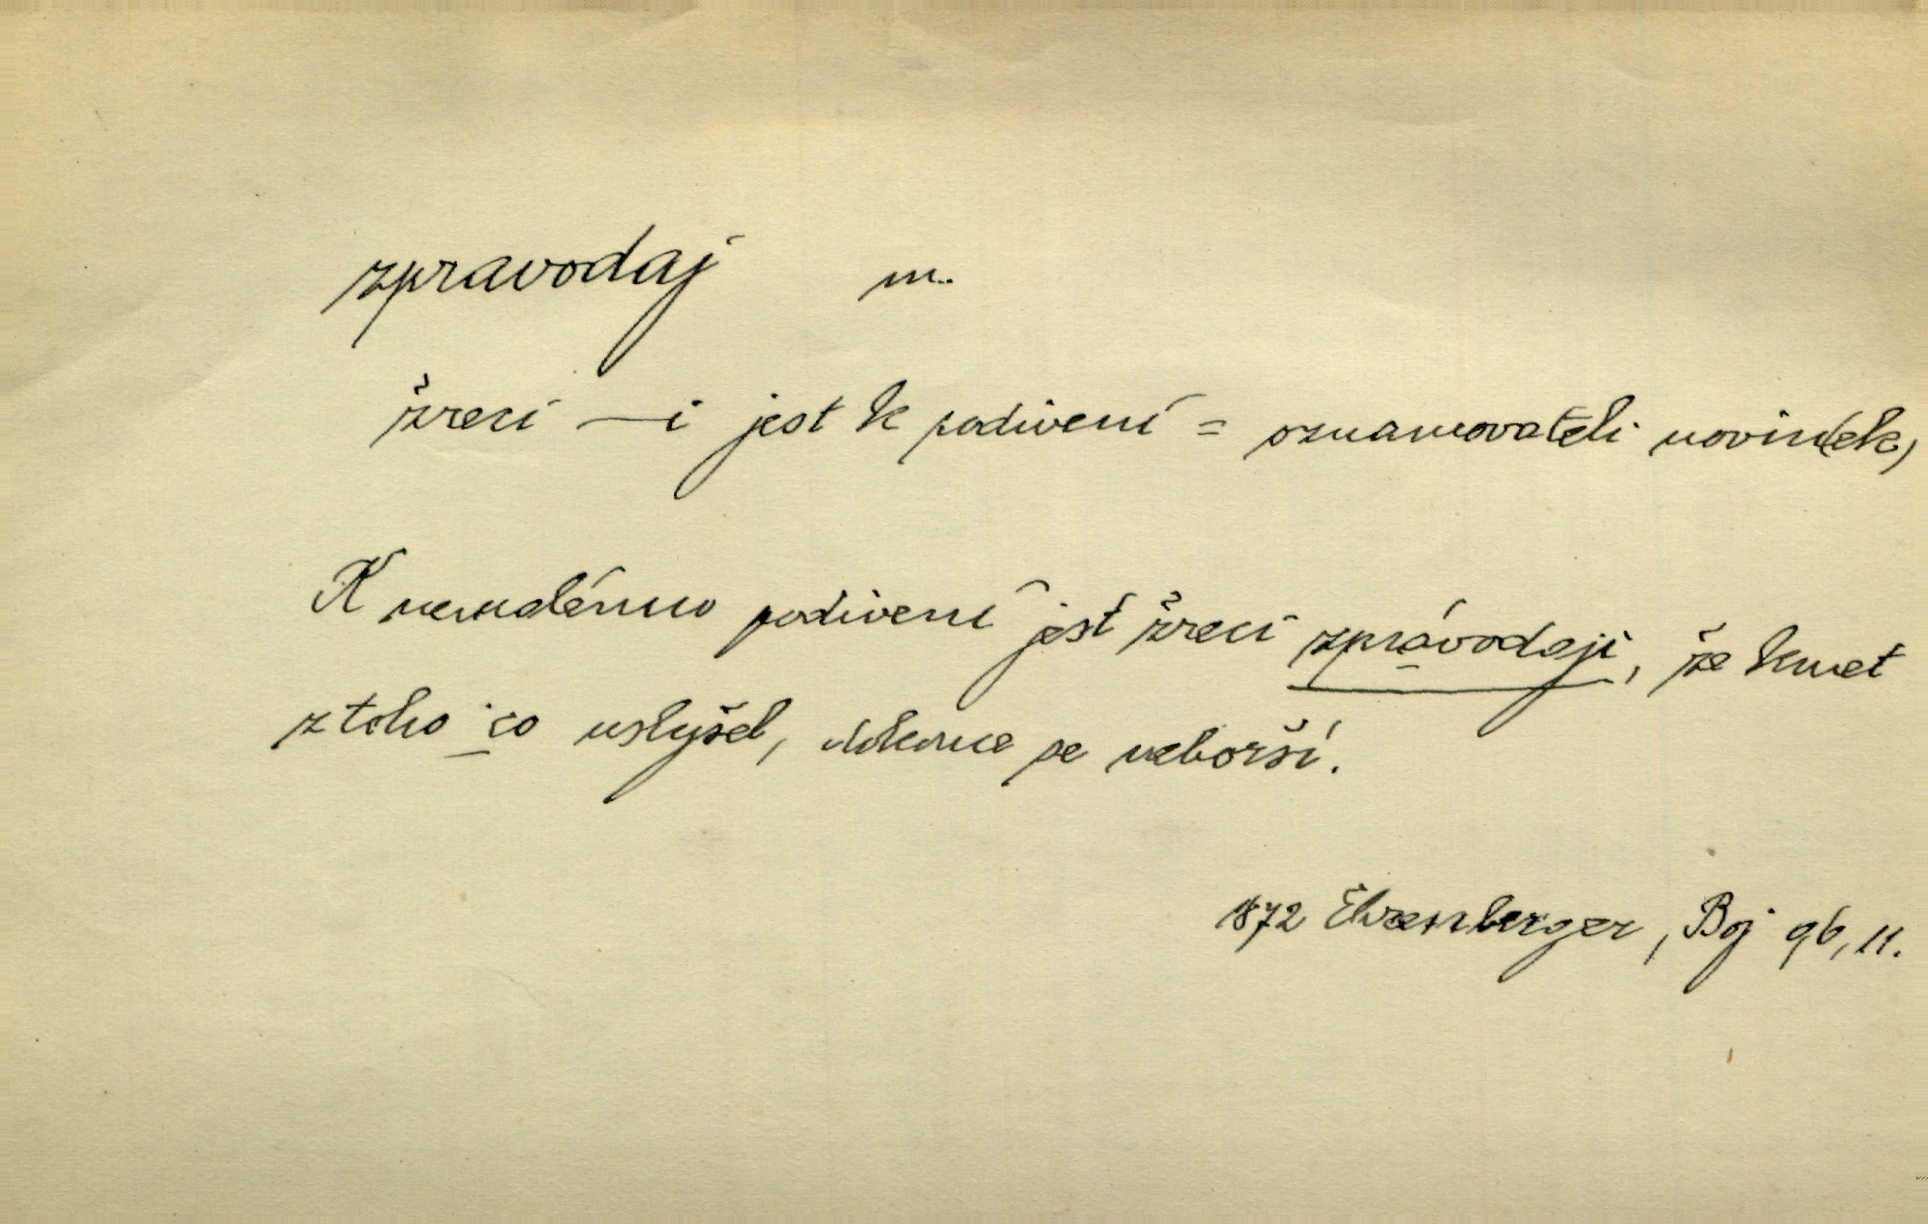 zpravodaj m.
žreci —i jest k podivení = oznamovateli novin(ek)
K nemalému podivení jest žreci zprávodaji, že kmet
z toho co uslyšel, dokonce se nehorší.
1872 Ehrenberger, Boj 96, 11.